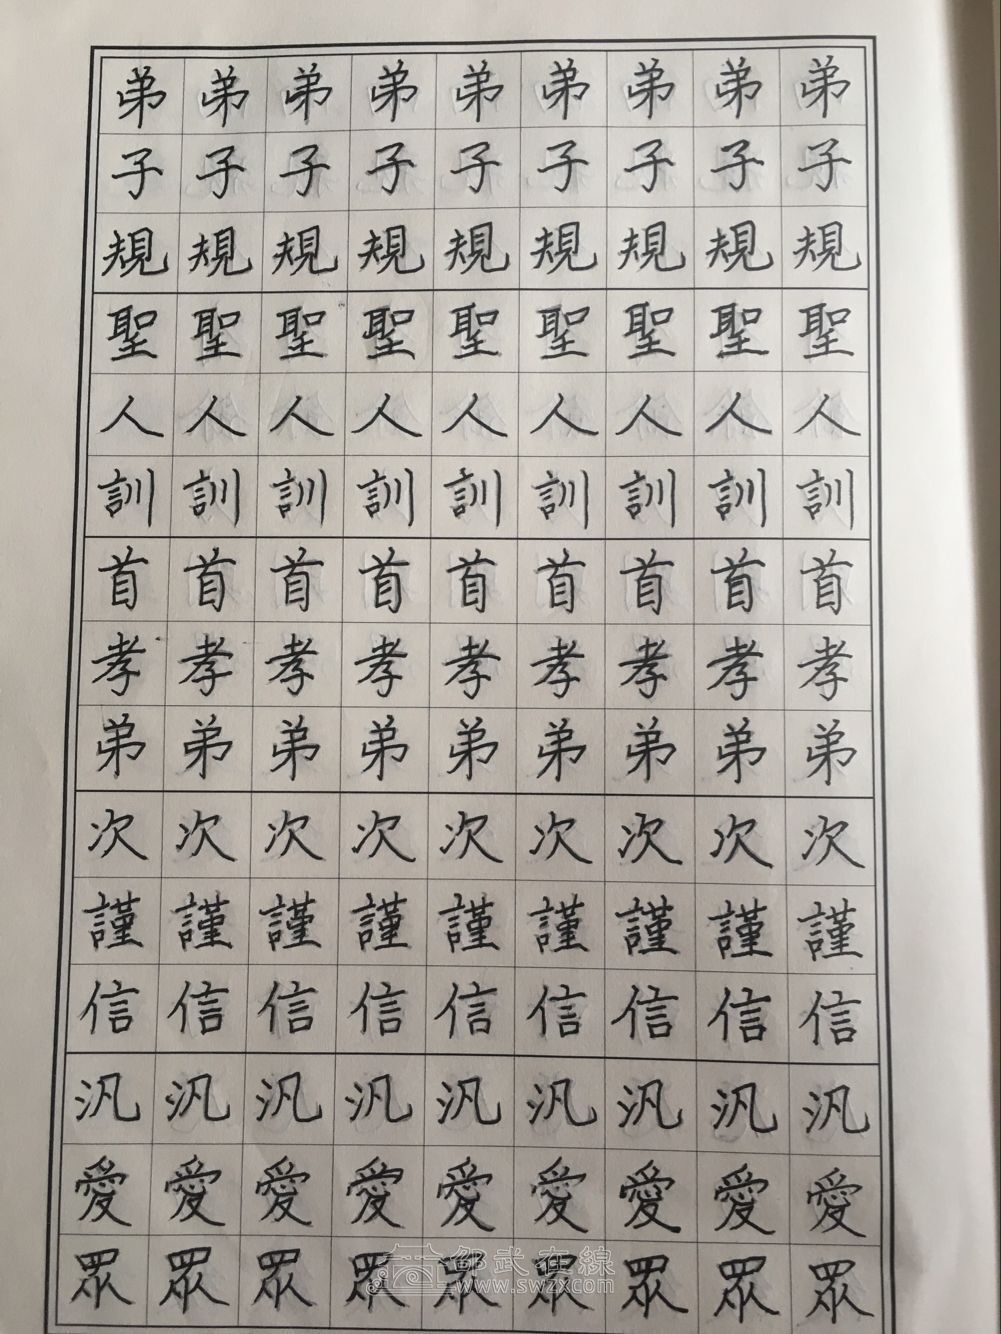 弟弟弟弟弟弟弟弟弟
子子子子子子子子子
規規規規規規規規規
聖聖聖聖聖聖聖聖聖
人人人人人人人人人
訓訓訓訓訓訓訓訓訓
首首首首首首首首首
孝孝孝孝孝孝孝孝孝
弟弟弟弟弟弟弟弟弟
次次次次次次次次次
謹謹謹謹謹謹謹謹謹
信信信信信信信信信
汎汎汎汎汎汎汎汎汎
愛愛愛愛愛愛愛愛愛
眾眾眾眾眾眾眾眾眾
邵武在線
www.swzx.com